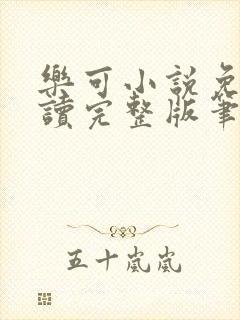 樂可小說免
讀完整版筆
五十嵐嵐